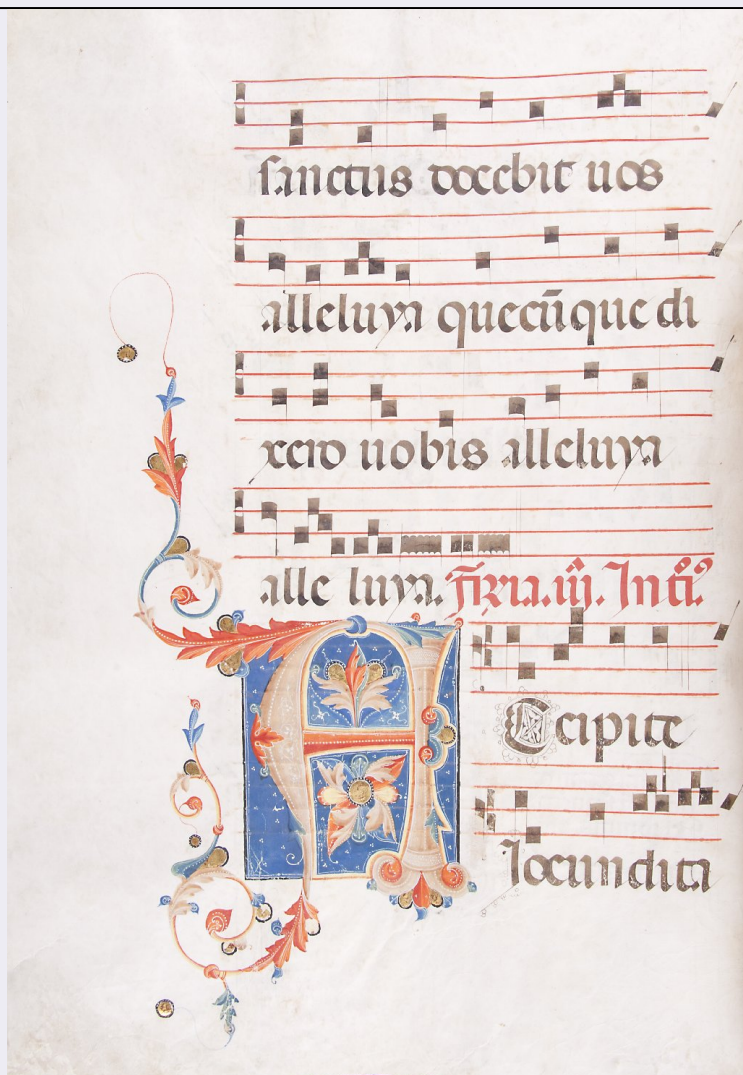 sanctus docebit uos
alleluya quecūque di
xero uobis alleluya
alle luya. Feria. iij. Intr̄.
A Ccipite
Iocundita